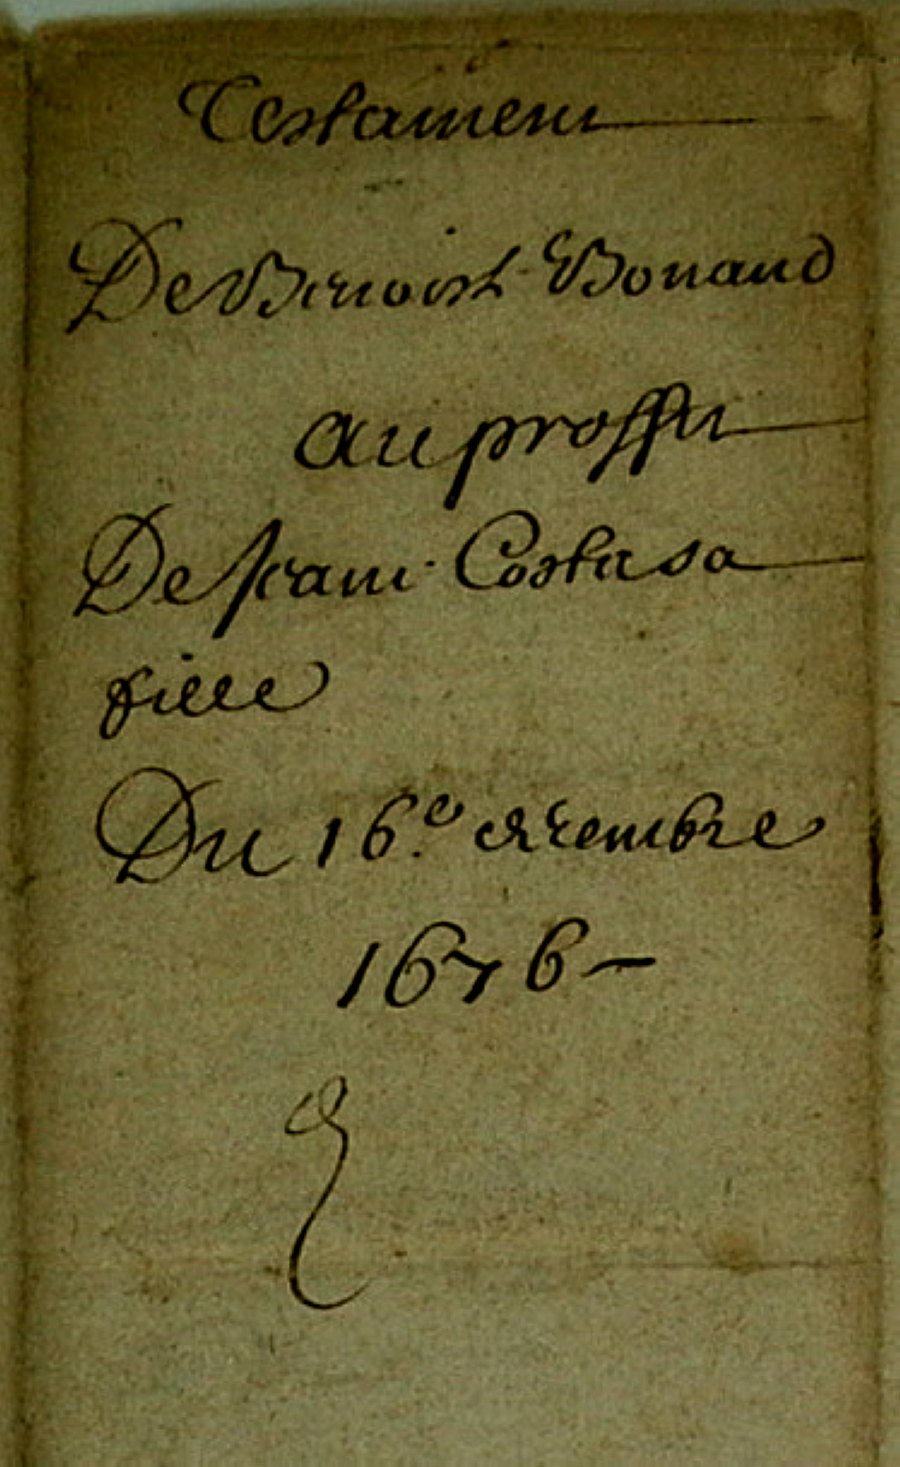 Testament
De Benoist Bonaud
au proffit
De Jeanne Coste sa
fille
Du 16e decembre
1676